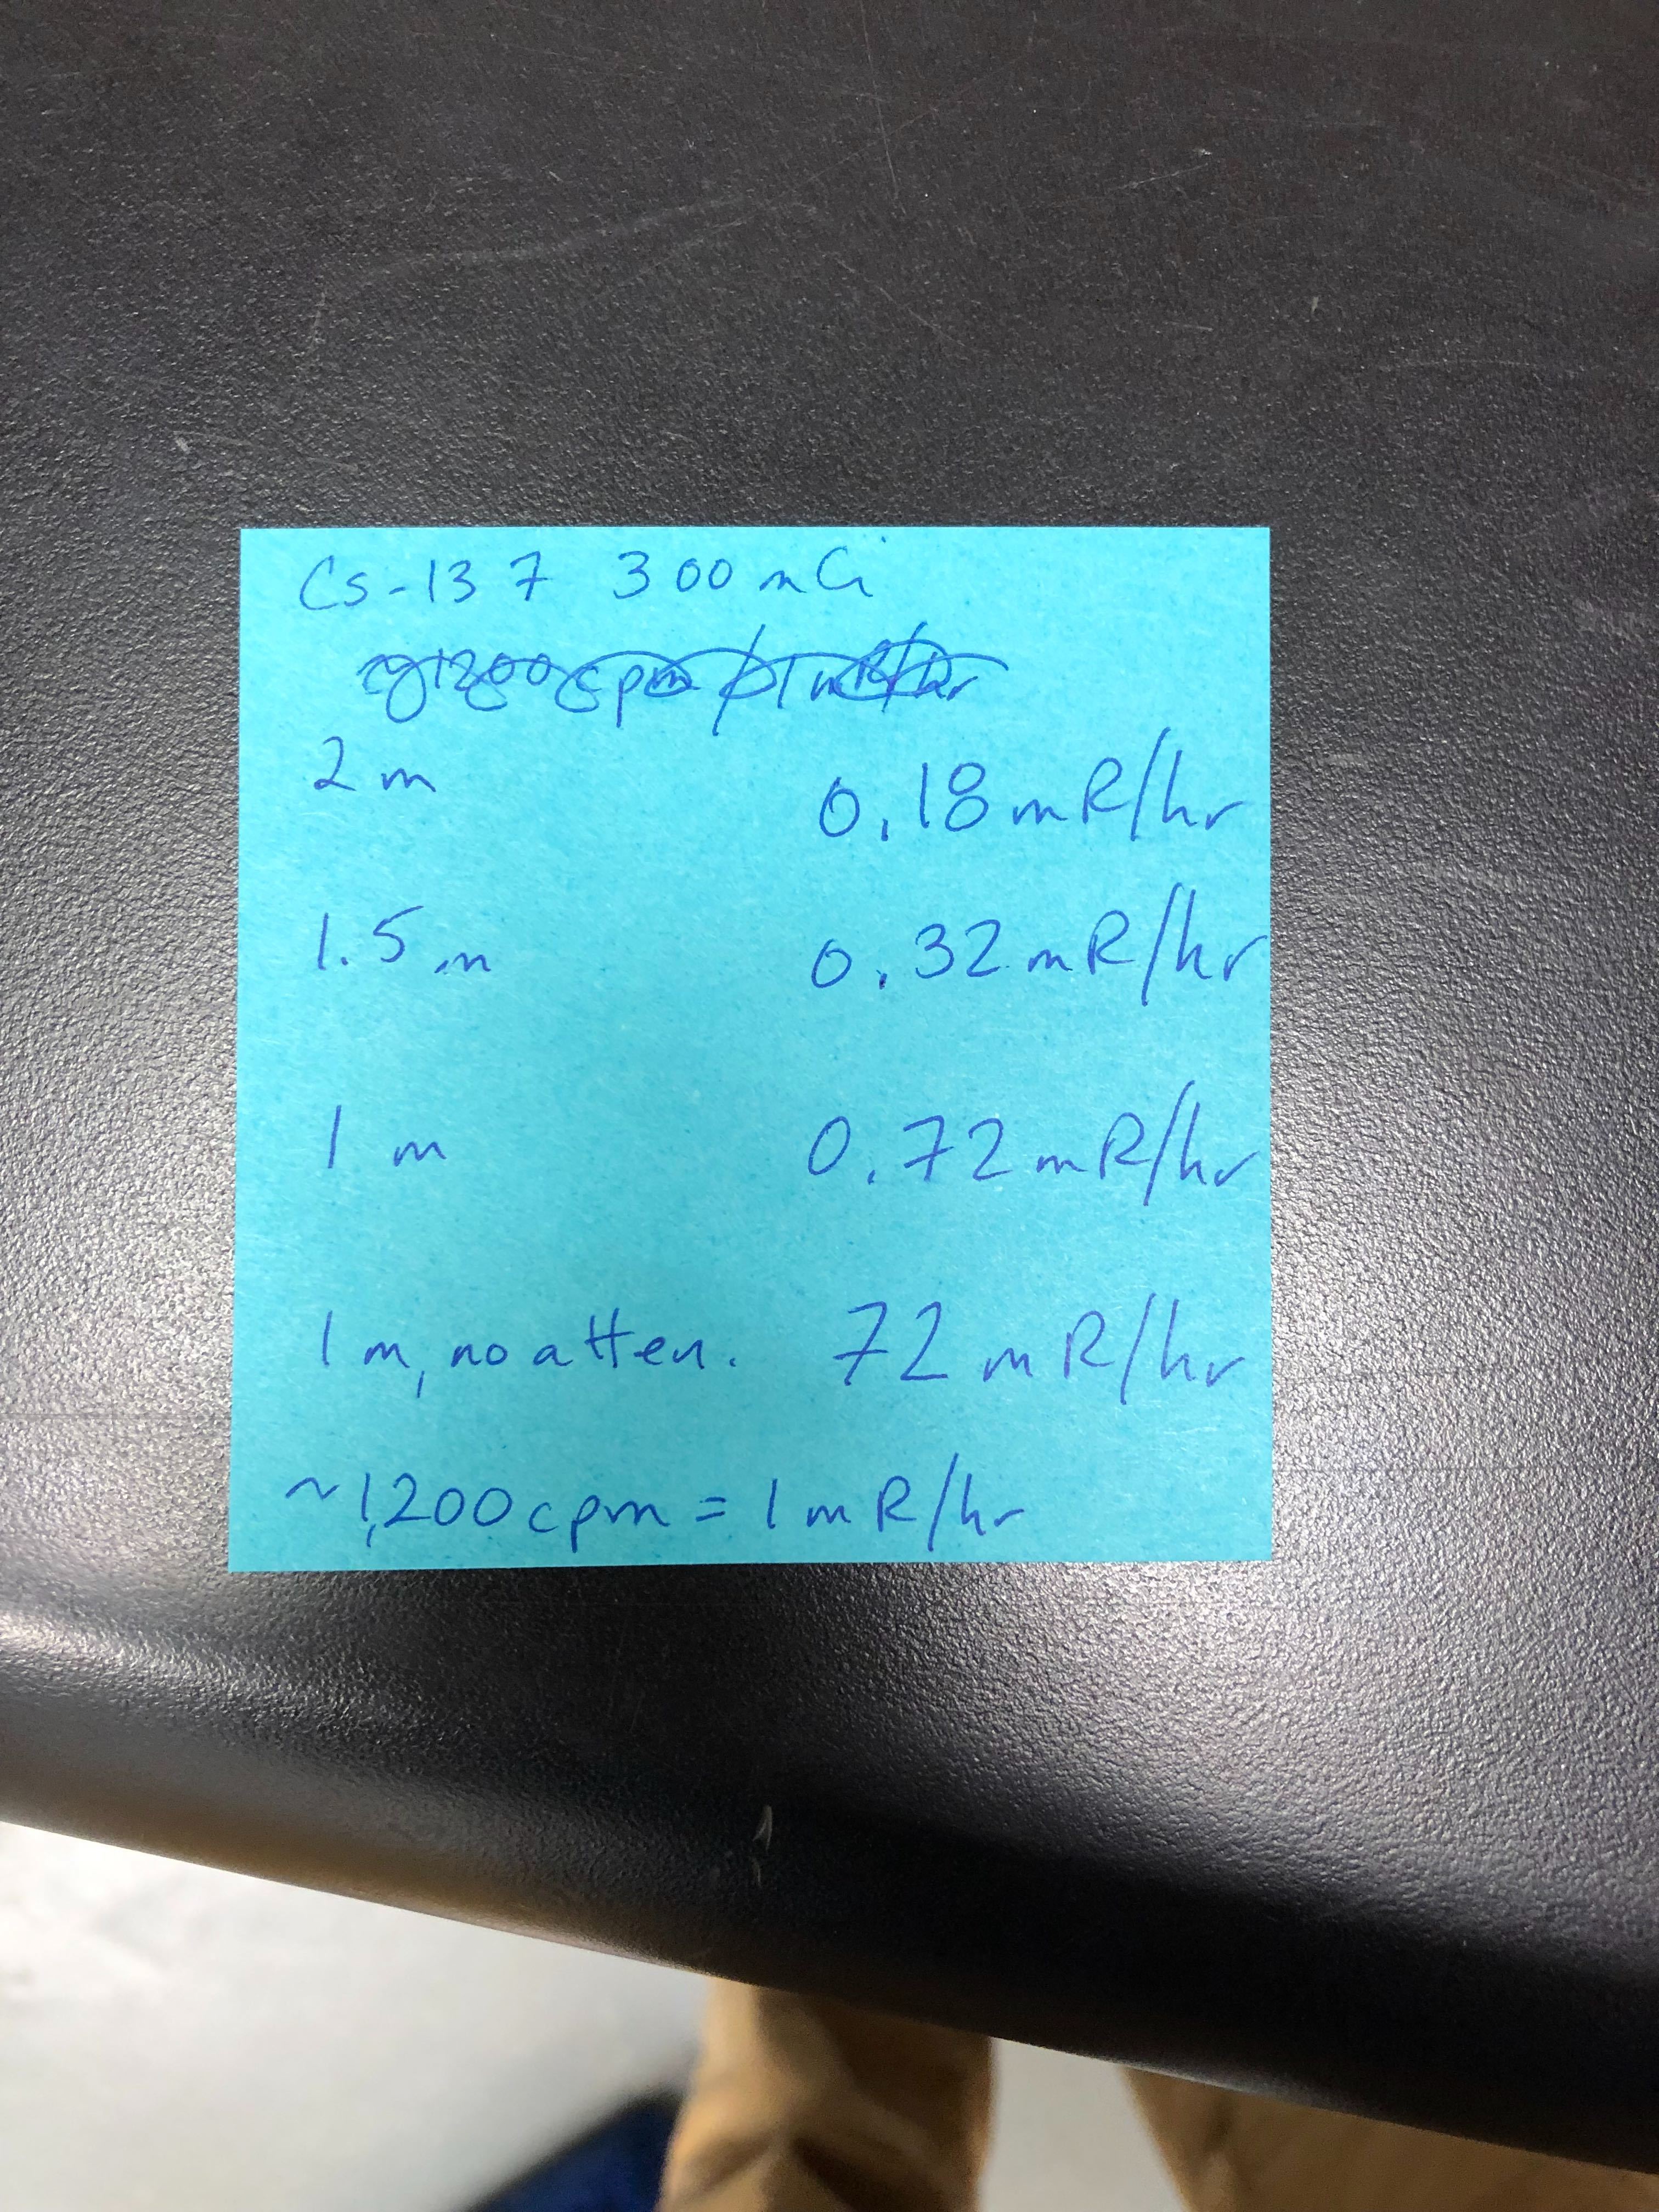 Cs-137 300 mCi
~1200 cpm / 1 mR/hr
2 m 0.18 mR/hr
1.5 m 0.32 mR/hr
1 m 0.72 mR/hr
1 m, no atten. 72 mR/hr
~1,200 cpm = 1 mR/hr